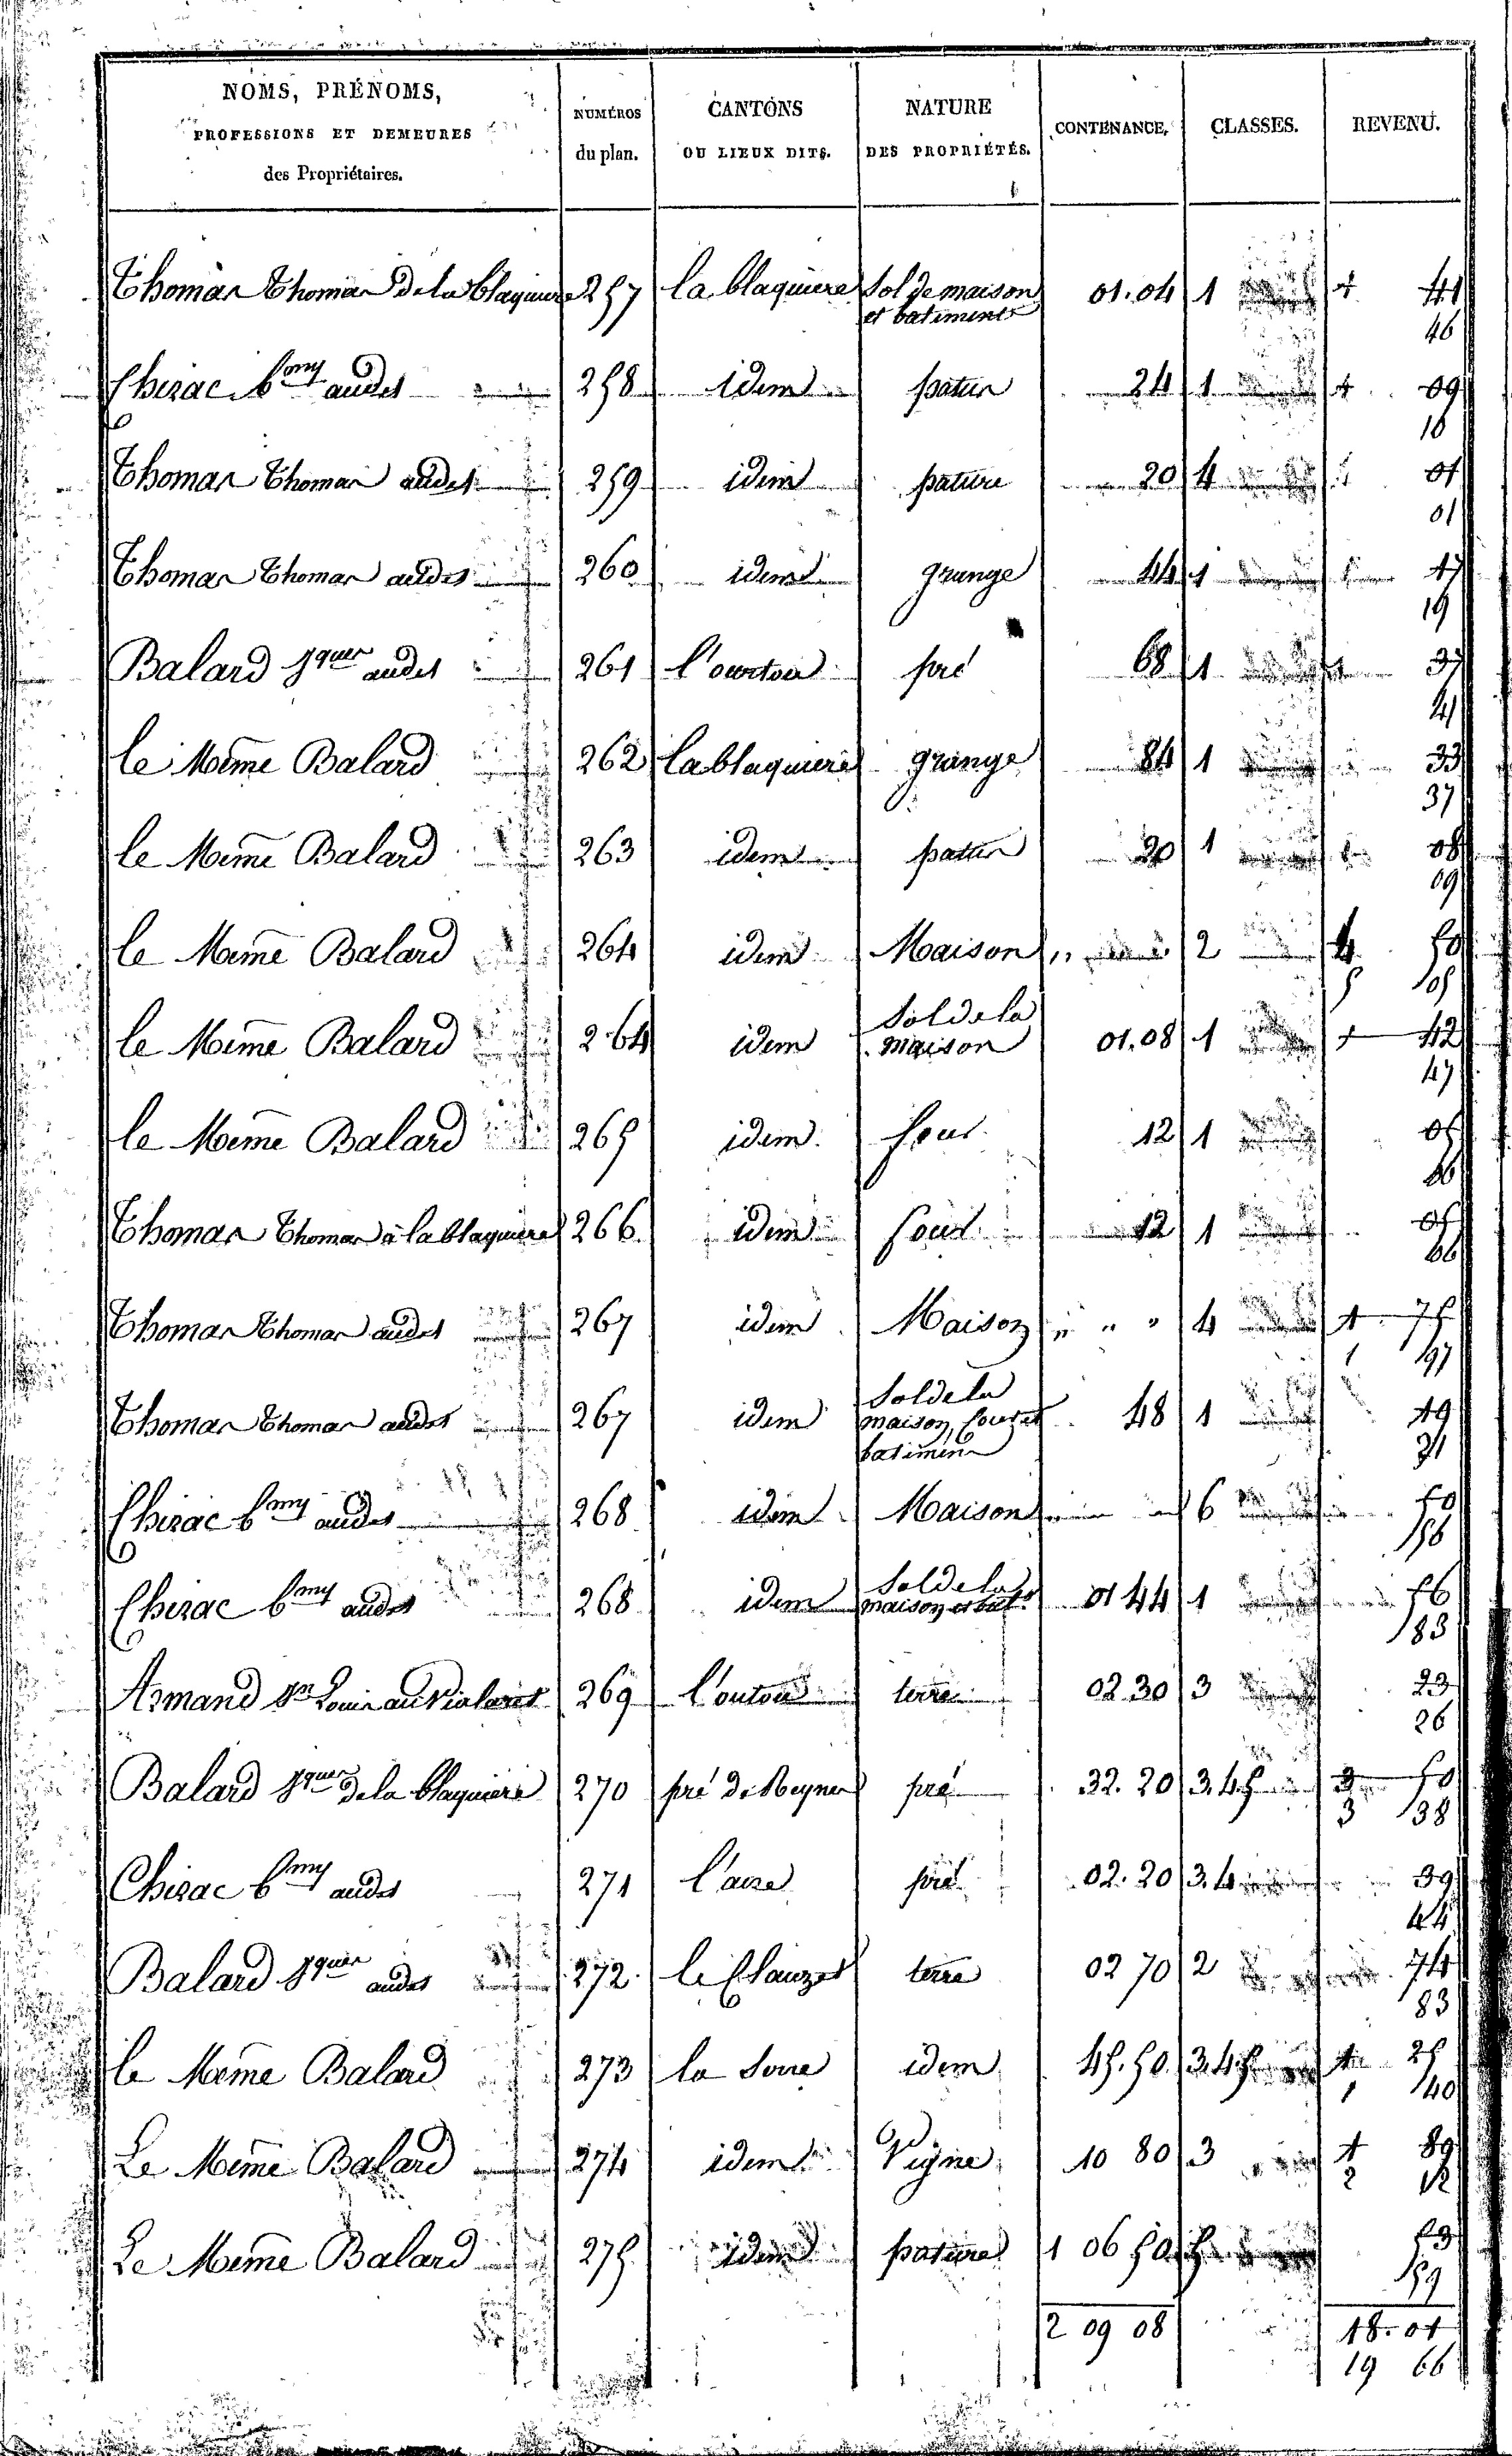 NOMS, PRÉNOMS,
PROFESSIONS ET DEMEURES
des Propriétaires.
NUMÉROS
du plan.
CANTONS
OU LIEUX DITS.
NATURE
DES PROPRIÉTÉS.
CONTENANCE.
CLASSES.
REVENU.
Thomas Thomas de la blaquiere 257 la blaquiere Sol de maison 01.04 1 41
et batiments 46
Chirac bmy audit 258 idem patus 24 1 09
10
Thomas Thomas audit 259 idem pature 20 4 01
01
Thomas Thomas audit 260 idem grange 44 1 17
19
Balard Jques audit 261 l'ourtou pré 68 1 37
41
le Meme Balard 262 la blaquiere grange 84 1 33
37
le Meme Balard 263 idem patus 20 1 08
09
le Meme Balard 264 idem Maison " 2 4 50
5 05
le Meme Balard 264 idem Sol de la
maison 01.08 1 42
47
le Meme Balard 265 idem four 12 1 05
06
Thomas Thomas à la blaquiere 266 idem four 12 1 05
06
Thomas Thomas audit 267 idem Maison " " " 4 1 75
1 97
Thomas Thomas audit 267 idem Sol de la
maison, four et 48 1 19
batimens 21
Chirac bmy audit 268 idem Maison 6 50
56
Chirac bmy audit 268 idem Sol de la
maison et bats 01 44 1 56
83
Armand Jn Louis au Vialaret 269 l'outou terre 02.30 3 23
26
Balard Jques de la blaquiere 270 pré de Reynes pré 32.20 3.4.5 3 50
3 38
Chirac bmy audit 271 l'aire pré 02.20 3.4 39
44
Balard Jques audit 272 le Clauzet terre 02 70 2 74
83
le Meme Balard 273 la Serre idem 45.50 3.4.5 1 25
1 40
Le Meme Balard 274 idem Vigne 10 80 3 1 89
2 12
Le Meme Balard 275 idem pature 1 06 50 5 53
59
2 09 08 18.01
19 66